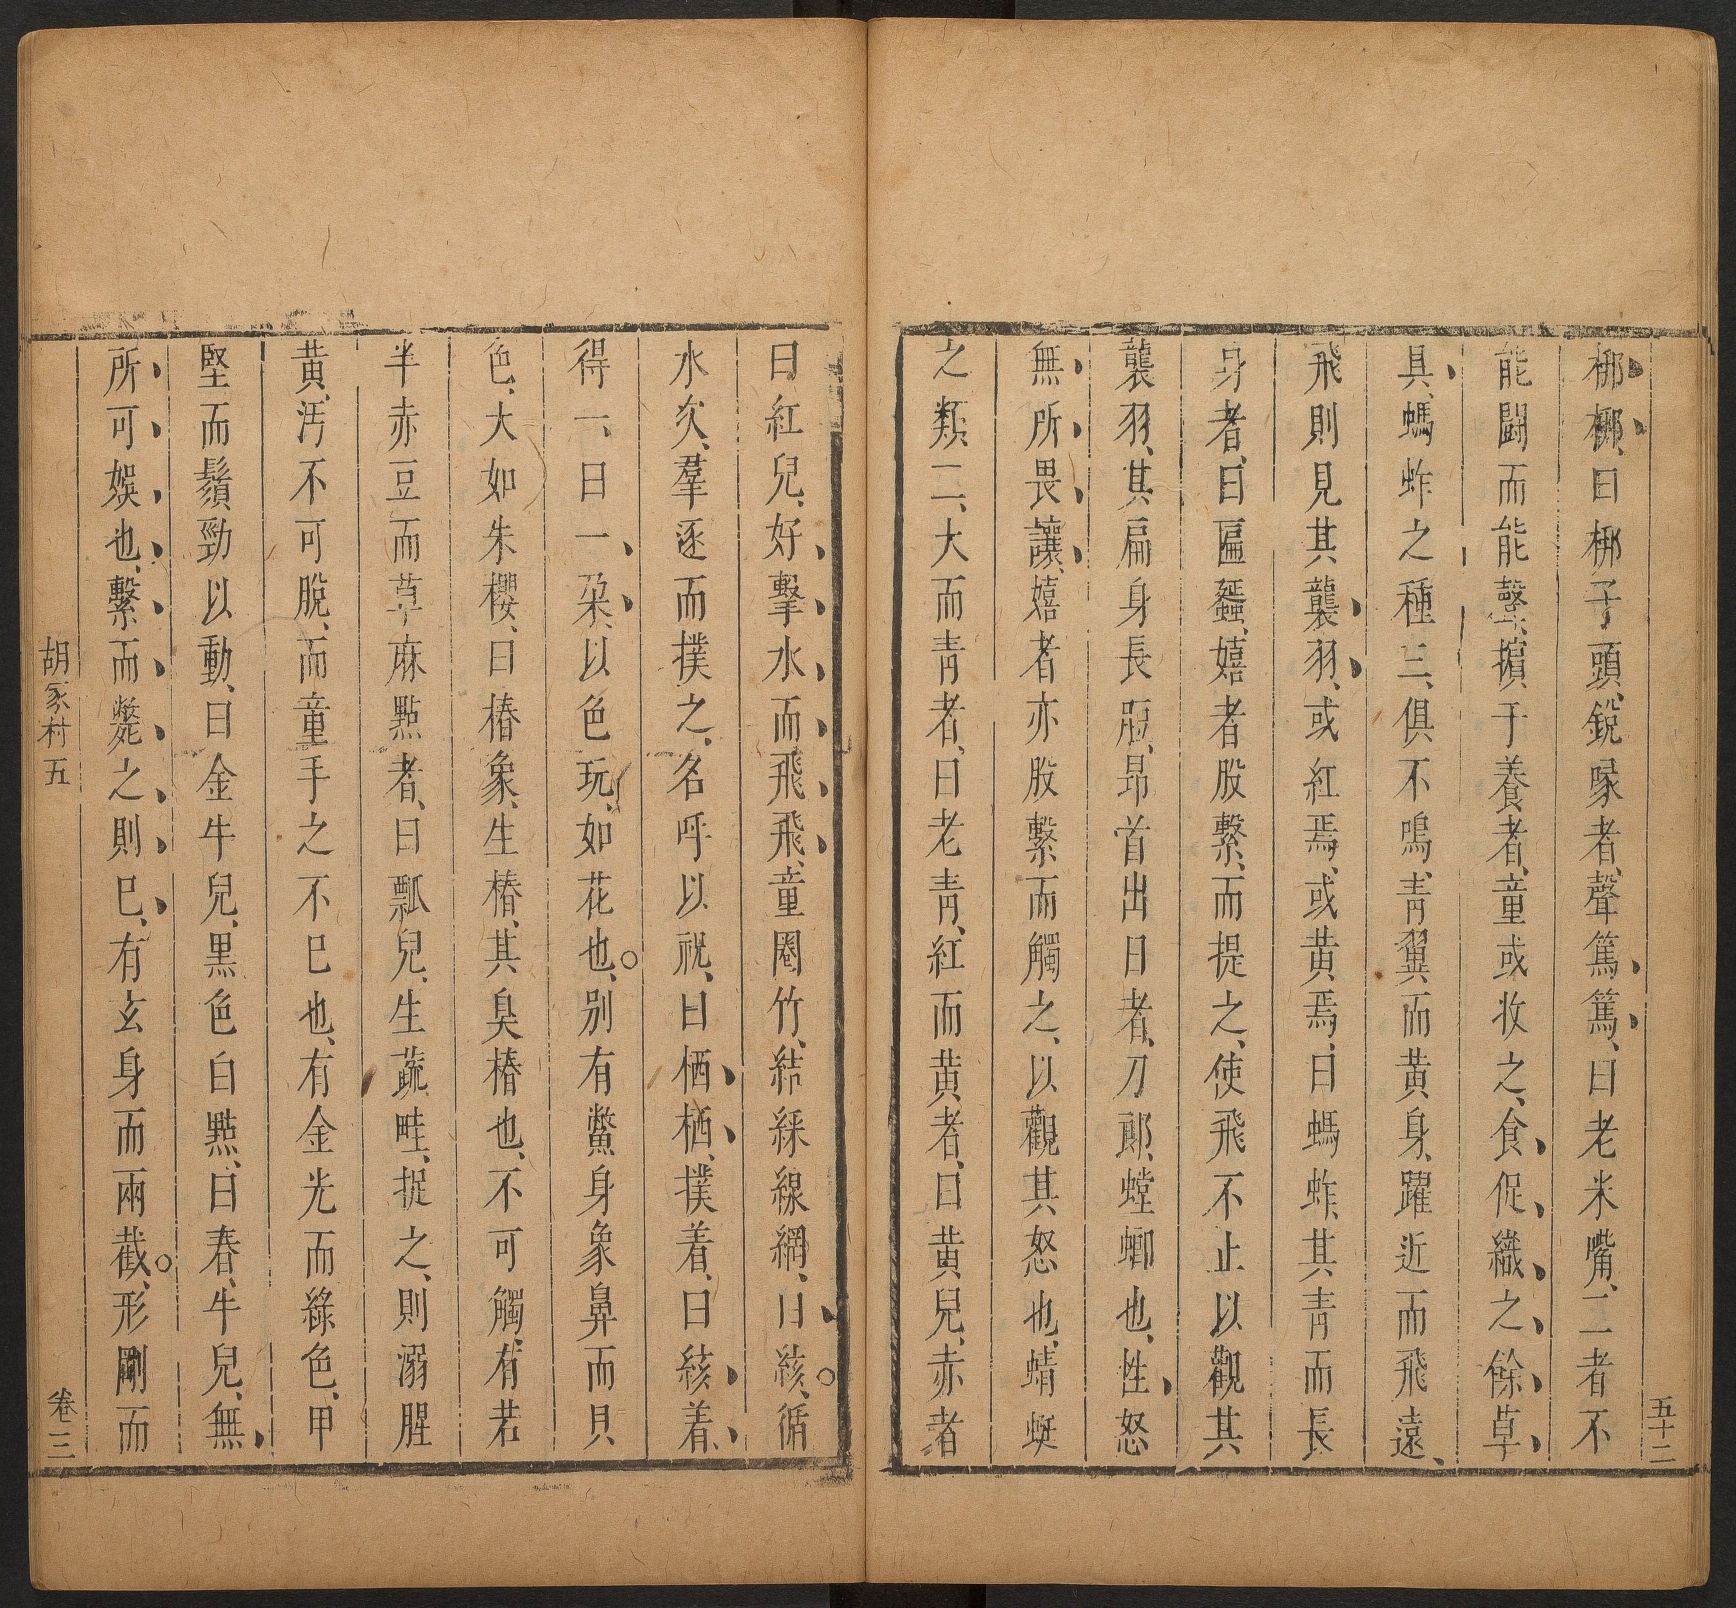 梆梆、曰梆子頭、銳喙者、聲篤篤、曰老米嘴、二者不
能鬬而能聲、擯于養者、童或收之、食促織之餘草
具、螞蚱之種三、俱不鳴、青翼而黃身、躍近而飛遠、
飛則見其襲羽、或紅焉、或黃焉、曰螞蚱、其青而長
身者、曰匾蜑、嬉者股繫、而提之、使飛不止以觀其
襲羽、其扁身長脰、昂首出日者、刀郞、螳螂也、性怒
無所畏讓、嬉者亦股繫而觸之、以觀其怒也、蜻蜓
之類二、大而青者、曰老青、紅而黃者、曰黃兒、赤者
五十二
曰紅兒、好擊水而飛飛、童圈竹、結綵線網、曰絃、循
水次、羣逐而撲之、名呼以祝、曰栖栖、撲着、曰絃着、
得一、曰一朶、以色玩、如花也、別有鱉身象鼻而貝
色、大如朱櫻、曰椿象、生椿、其臭椿也、不可觸、有若
半赤豆而草麻點者、曰瓢兒、生蔬畦、捉之、則溺腥
黃、汚不可脫、而童手之不已也、有金光而綠色、甲
堅而鬚勁以動、曰金牛兒、黑色白點、曰春牛兒、無
所可娛也、繫而斃之、則已、有玄身而兩截、形剛而
胡家村五
卷三